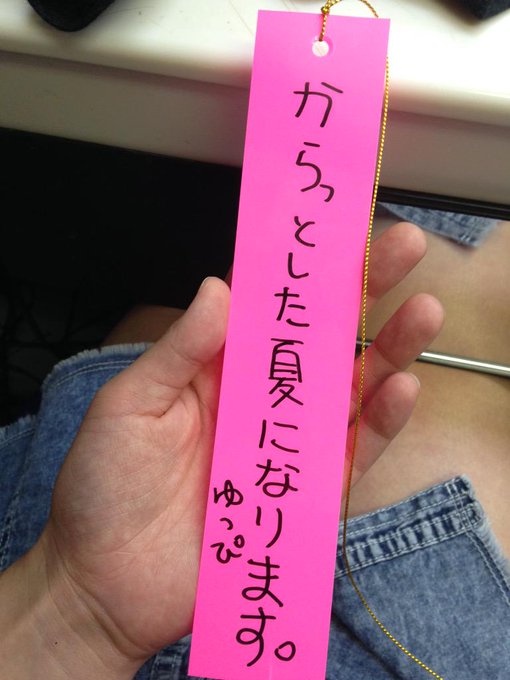 からっとした夏になります。
ゆっぴ